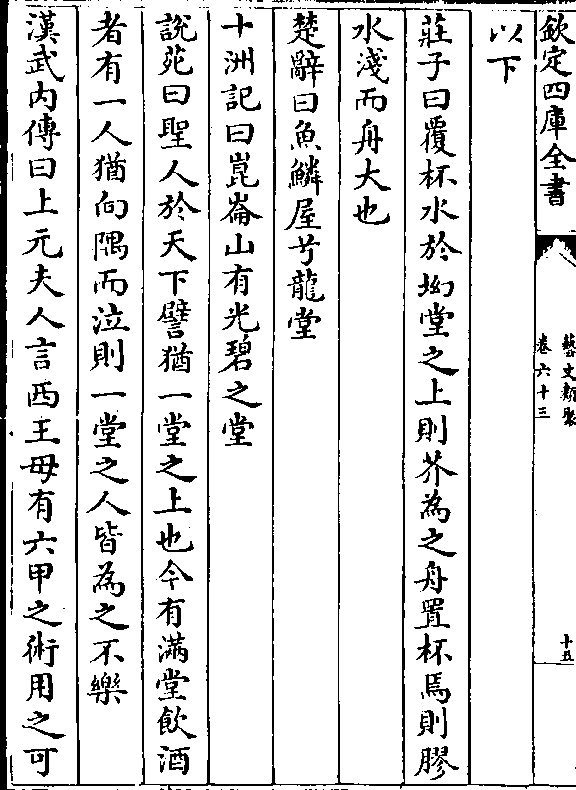 欽定四庫全書
藝文類聚
卷六十三
十五
以下
莊子曰覆杯水於坳堂之上則芥為之舟置杯焉則膠
水淺而舟大也
楚辭曰魚鱗屋兮龍堂
十洲記曰崑崙山有光碧之堂
說苑曰聖人於天下譬猶一堂之上也今有滿堂飲酒
者有一人猶向隅而泣則一堂之人皆為之不樂
漢武內傳曰上元夫人言西王母有六甲之術用之可